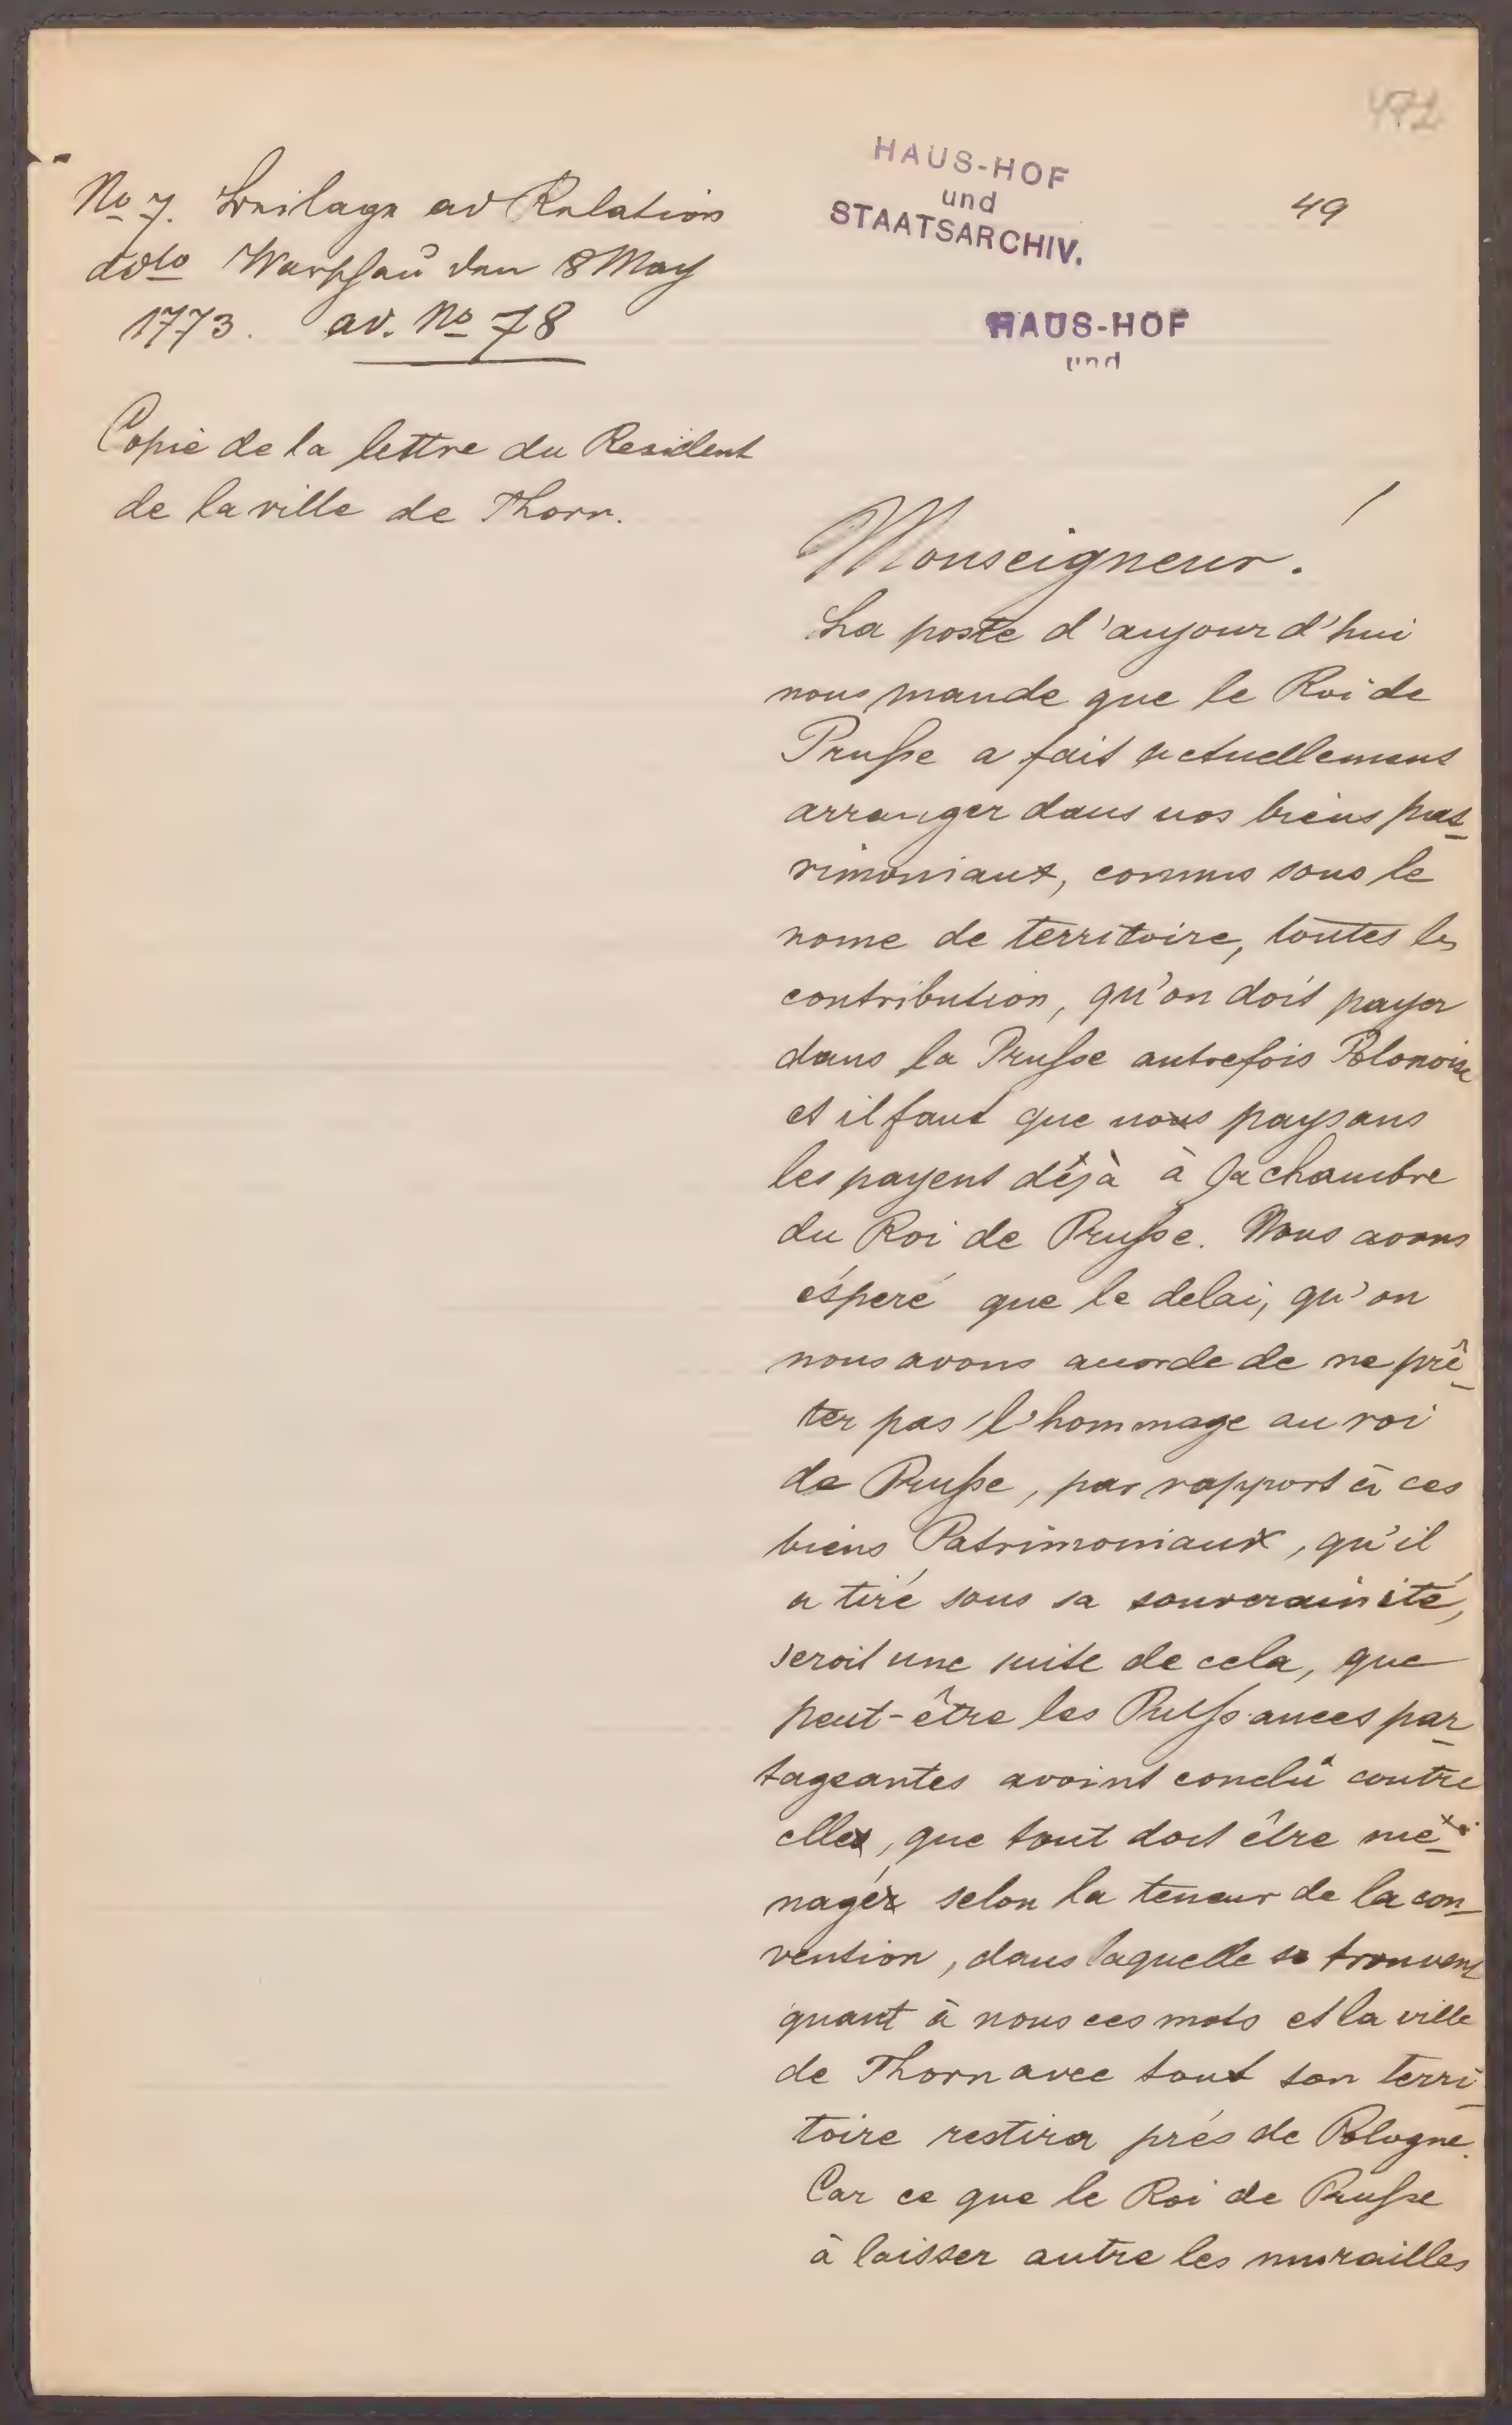 472
HAUS-HOF
und
STAATSARCHIV.
49
No 7. Beilage ad Relation
ddto Warschau den 8 May
1773. ad. No 78
HAUS-HOF
und
Copie de la lettre du Resident
de la ville de Thorn.
Monseigneur!
La poste d'aujourd'hui
nous mande que le Roi de
Prusse a fait actuellement
arranger dans nos biens pat-
rimoniaux, connus sous le
nome de territoire, toutes les
contribution, qu'on doit payer
dans la Prusse autrefois Polonoise
et il faut que nous paysans
les payent déjà à sa chambre
du Roi de Prusse. Nous avons
ésperé que le delai, qu'on
nous avons accorde de ne prê-
ter pas l'hommage au roi
de Prusse, par rapport à ces
biens Patrimoniaux, qu'il
a tiré sous sa souverainité,
seroit une suite de cela, que
peut-être les Puissances par-
tageantes avoint conclû contre
elles, que tout doit être mé-
nager selon la teneur de la con-
vention, dans laquelle se trouvent
quant à nous ces mots et la ville
de Thorn avec tout son terri-
toire restira prés de Pologne.
Car ce que le Roi de Prusse
à laisser autre les murailles